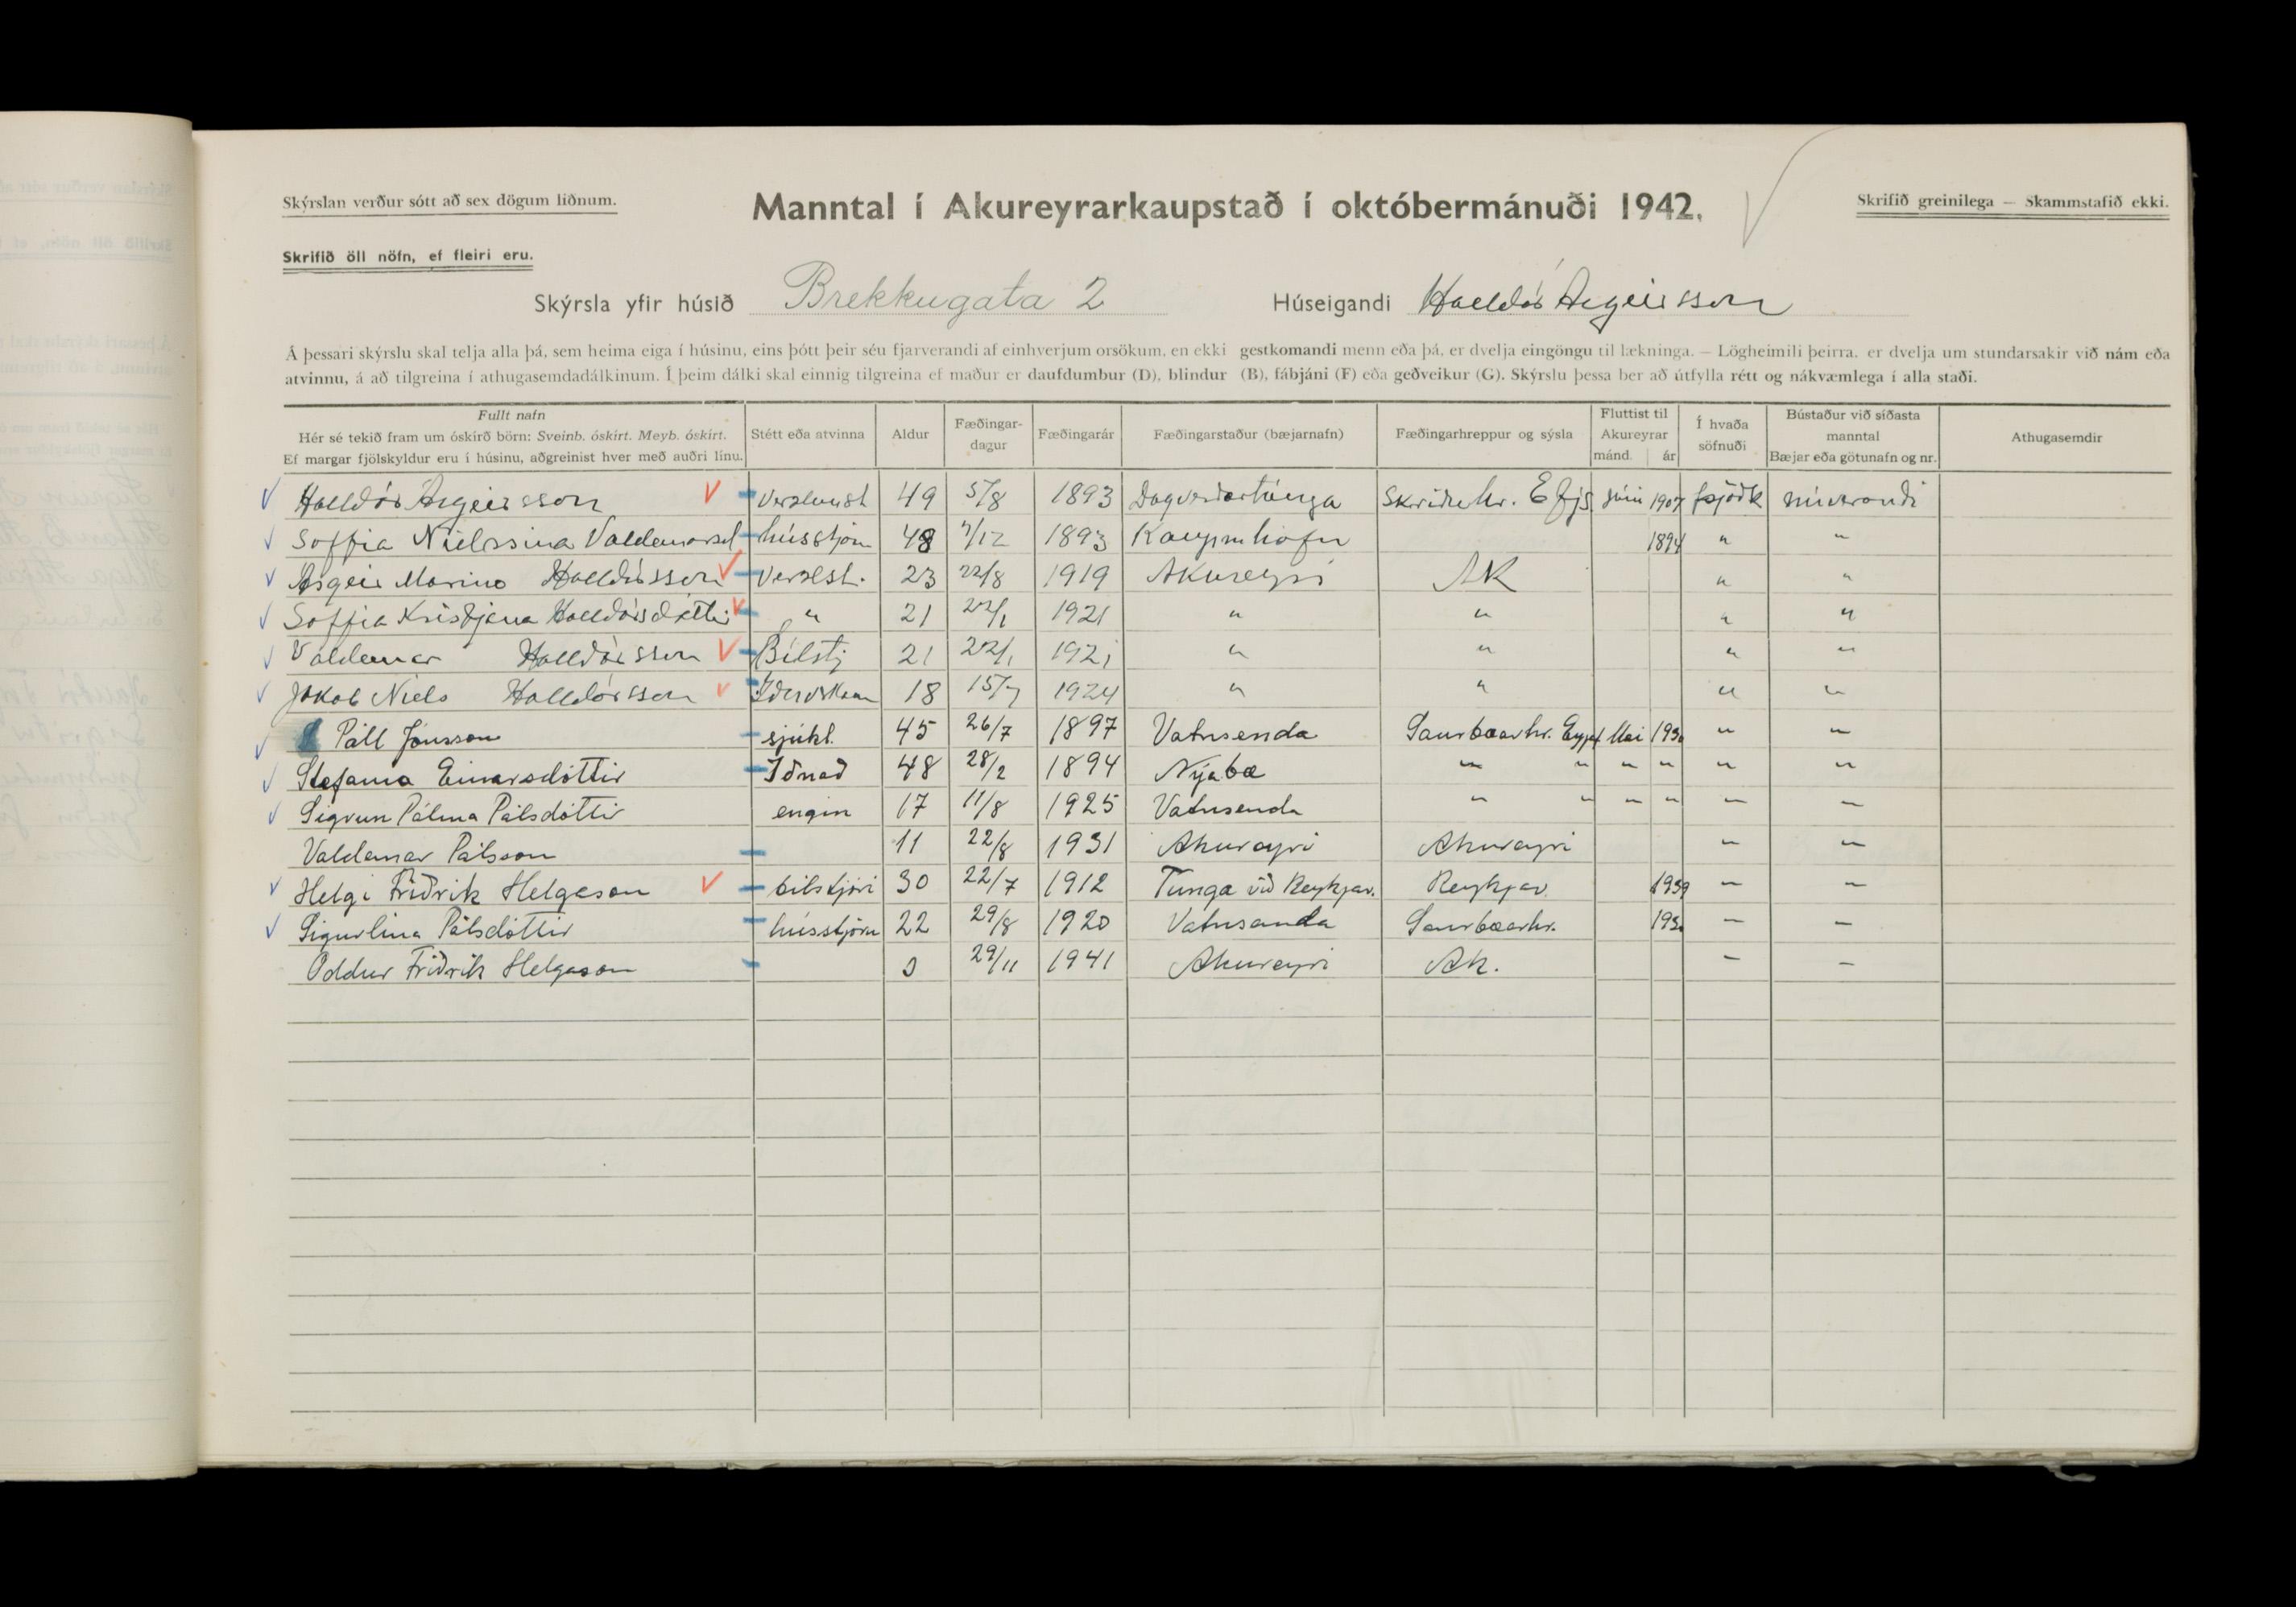 Skýrslan verður sótt að sex dögum liðnum.
Manntal í Akureyrarkaupstað í októbermánuði 1942.
Skrifið greinilega — Skammstafið ekki.
Skrifið öll nöfn, ef fleiri eru.
Skýrsla yfir húsið Brekkugata 2 Húseigandi Halldór Ásgeirsson
Á þessari skýrslu skal telja alla þá, sem heima eiga í húsinu, eins þótt þeir séu fjarverandi af einhverjum orsökum, en ekki gestkomandi menn eða þá, er dvelja eingöngu til lækninga. — Lögheimili þeirra, er dvelja um stundarsakir við nám eða
atvinnu, á að tilgreina í athugasemdadálkinum. Í þeim dálki skal einnig tilgreina ef maður er daufdumbur (D), blindur (B), fábjáni (F) eða geðveikur (G). Skýrslu þessa ber að útfylla rétt og nákvæmlega í alla staði.
Fullt nafn
Hér sé tekið fram um óskírð börn: Sveinb. óskírt. Meyb. óskírt.
Ef margar fjölskyldur eru í húsinu, aðgreinist hver með auðri línu.
Stétt eða atvinna
Aldur
Fæðingar-
dagur
Fæðingarár
Fæðingarstaður (bæjarnafn)
Fæðingarhreppur og sýsla
Fluttist til
Akureyrar
mánd. ár
Í hvaða
söfnuði
Bústaður við síðasta
manntal
Bæjar eða götunafn og nr.
Athugasemdir
Halldór Ásgeirsson 49 5/8 1893 Dagverðartúnga Skriðuhr. Efjs júní 1907 þjóðk núverandi
Soffia Nielssina Valdemarsd hússtjórn 48 1/12 1893 Kaupmhöfn 1894 " "
Ásgeir Marino Halldórsson Verzlst. 23 22/8 1919 Akureyri AK " "
Soffia Kristjana Halldórsdóttir " 21 22/1 1921 " " " "
Valdemar Halldórsson Bílstj 21 22/1 1921 " " " "
Jakob Niels Halldórsson 18 15/7 1924 " " " "
Páll Jónsson sjúkl. 45 26/7 1897 Vatnsenda Saurbæarhr. Eyjf Mai 1930 " "
Stefania Einarsdóttir Iðnað 48 28/2 1894 Nýabæ " " " " " "
Sigrun Pálina Pálsdóttir engin 17 11/8 1925 Vatnsenda " " " " " "
Valdemar Pálsson 11 22/8 1931 Akureyri Akureyri " "
Helgi Friðrik Helgason bilstjóri 30 22/7 1912 Tunga við Reykjav. Reykjav. 1939 " "
Sigurlina Pálsdóttir hússtjórn 22 29/8 1920 Vatnsenda Saurbæarhr. 1930 " "
Oddur Friðrik Helgason 0 29/11 1941 Akureyri Ak. " "